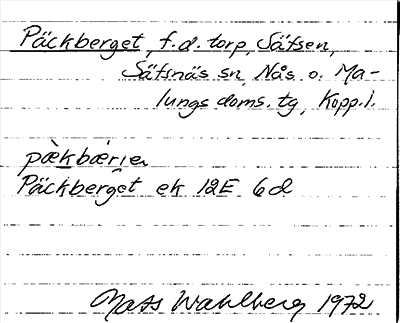 Päckberget, f.d. torp, Sätsen,
Säfsnäs sn, Nås o. Ma-
lungs doms. tg, Kopp. l.
pæ̀kbæ̀rjen
Päckberget ek 12E 6d
Mats Wahlberg 1972